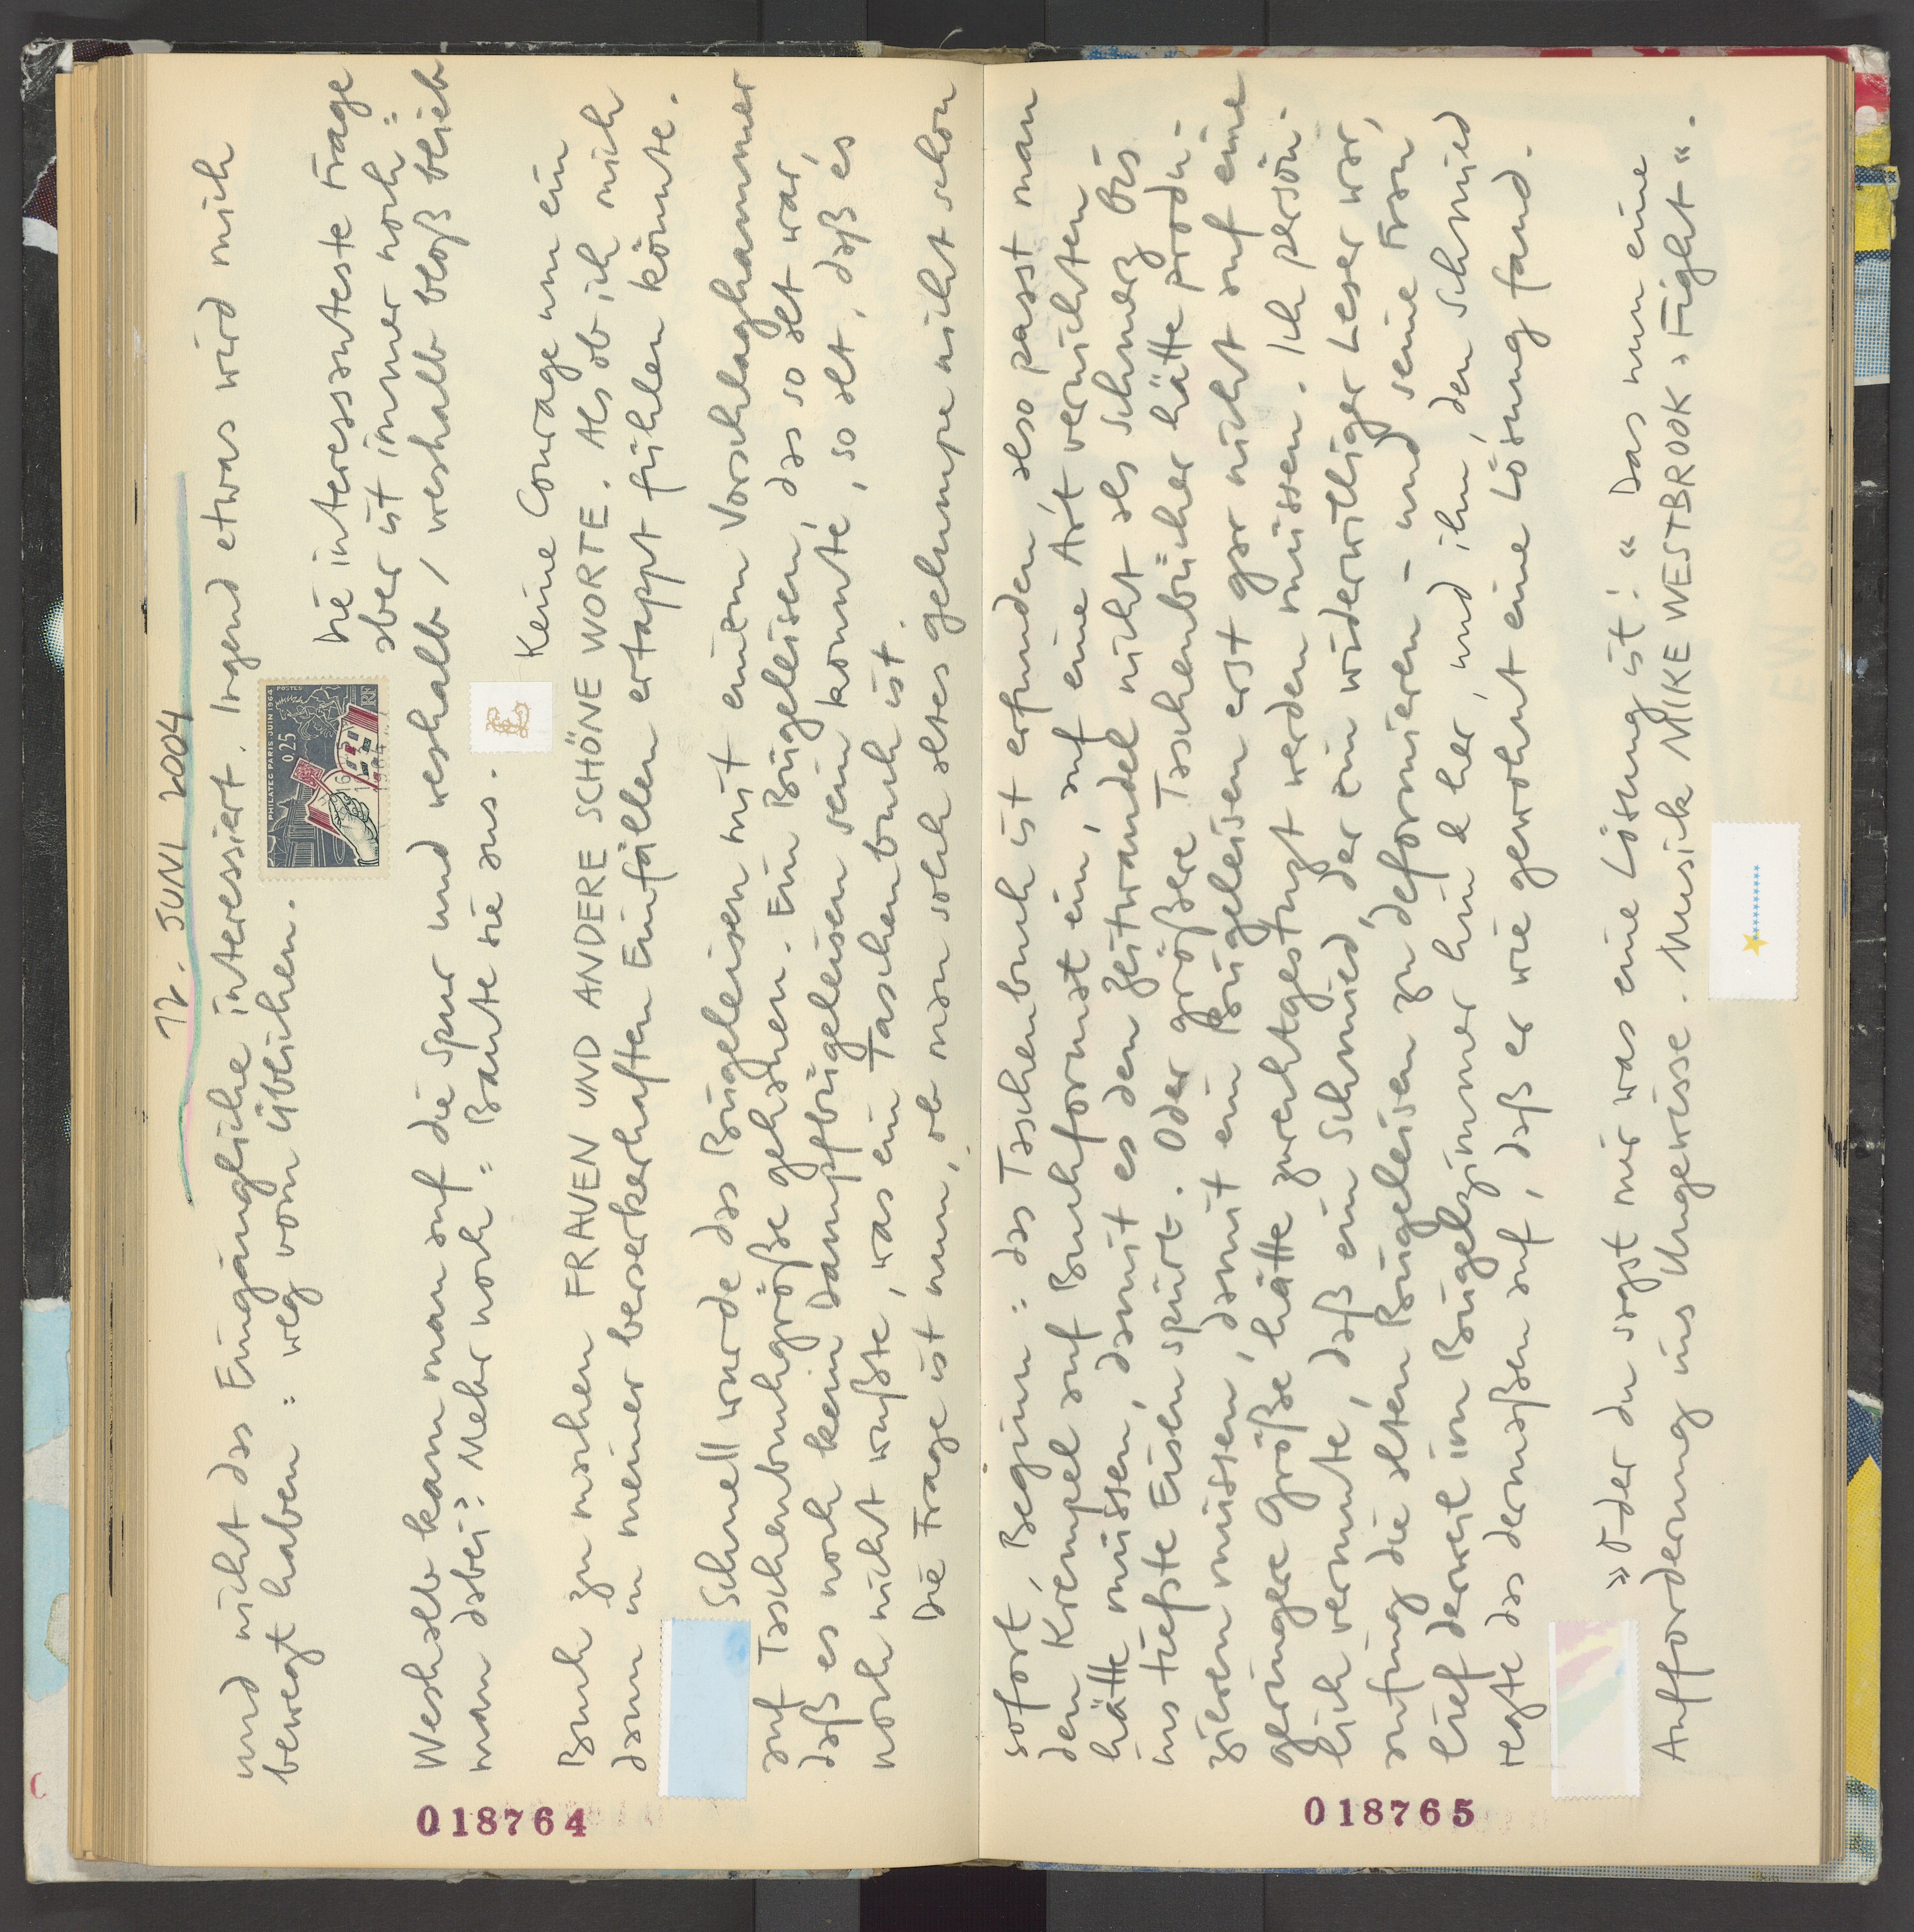 17. JUNI 2004
und nicht das Eingängliche interessiert. Irgend etwas wird mich
bewegt haben: weg vom üblichen.
PHILATEC PARIS JUIN 1964
0,25
POSTES
RF
Die interessanteste Frage
aber ist immer noch:
Weshalb kam man auf die Spur und weshalb / weshalb bloß blieb
man dabei? Mehr noch: Baute sie aus.
Keine Courage um ein
Buch zu machen FRAUEN UND ANDERE SCHÖNE WORTE. Als ob ich mich
dann in meiner berserkerhaften Einfällen ertappt fühlen könnte.
Schnell wurde das Bügeleisen mit einem Vorschlaghammer
auf Taschenbuchgröße gehauen. Ein Bügeleisen, das so alt war,
daß es noch kein Dampfbügeleisen sein konnte, so alt, daß es
noch nicht wußte, was ein Taschenbuch ist.
Die Frage ist nun, ob man solch altes gelumpe nicht schon
018764
sofort, Beginn: das Taschenbuch ist erfunden, also passt man
den Krempel auf Buchformat ein, auf eine Art vernichten
hätte müssen, damit es den Zeitwandel nicht als Schmerz bis
ins tiefste Eisen spürt. Oder größere Taschenbücher hätte produ-
zieren müssen, damit ein Bügeleisen erst gar nicht auf eine
geringere Größe hätte zurechtgestutzt werden müssen. Ich persön-
lich vermute, daß ein Schmied, der ein widerwilliger Leser war,
anfing die alten Bügeleisen zu deformieren – und seine Frau,
lief derweil im Bügelzimmer hin & her, und ihm, den Schmied
regte das dermaßen auf, daß er wie gewohnt eine Lösung fand.
»Oder du sagst mir was eine Lösung ist!« Das nun eine
Aufforderung ins Ungewisse. Musik MIKE WESTBROOK ›Fight«.
018765